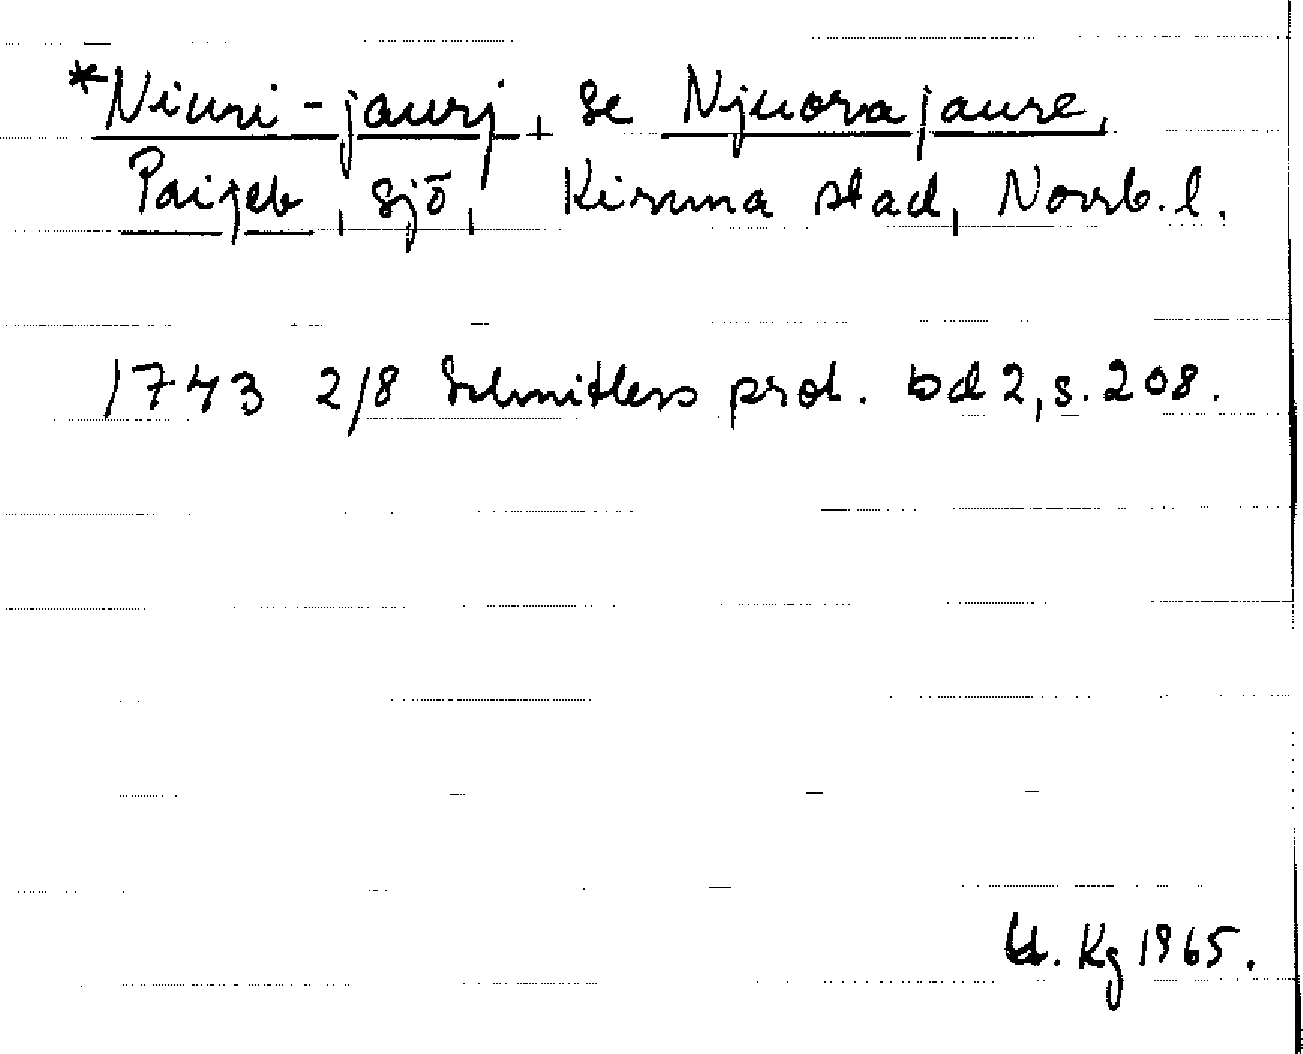 *Niuri-jaurj, se Njuorajaure,
Paijeb, sjö, Kiruna stad, Norrb. l.
1743 2/8 Schnitlers prot. bd 2, s. 208.
U. Kg 1965.